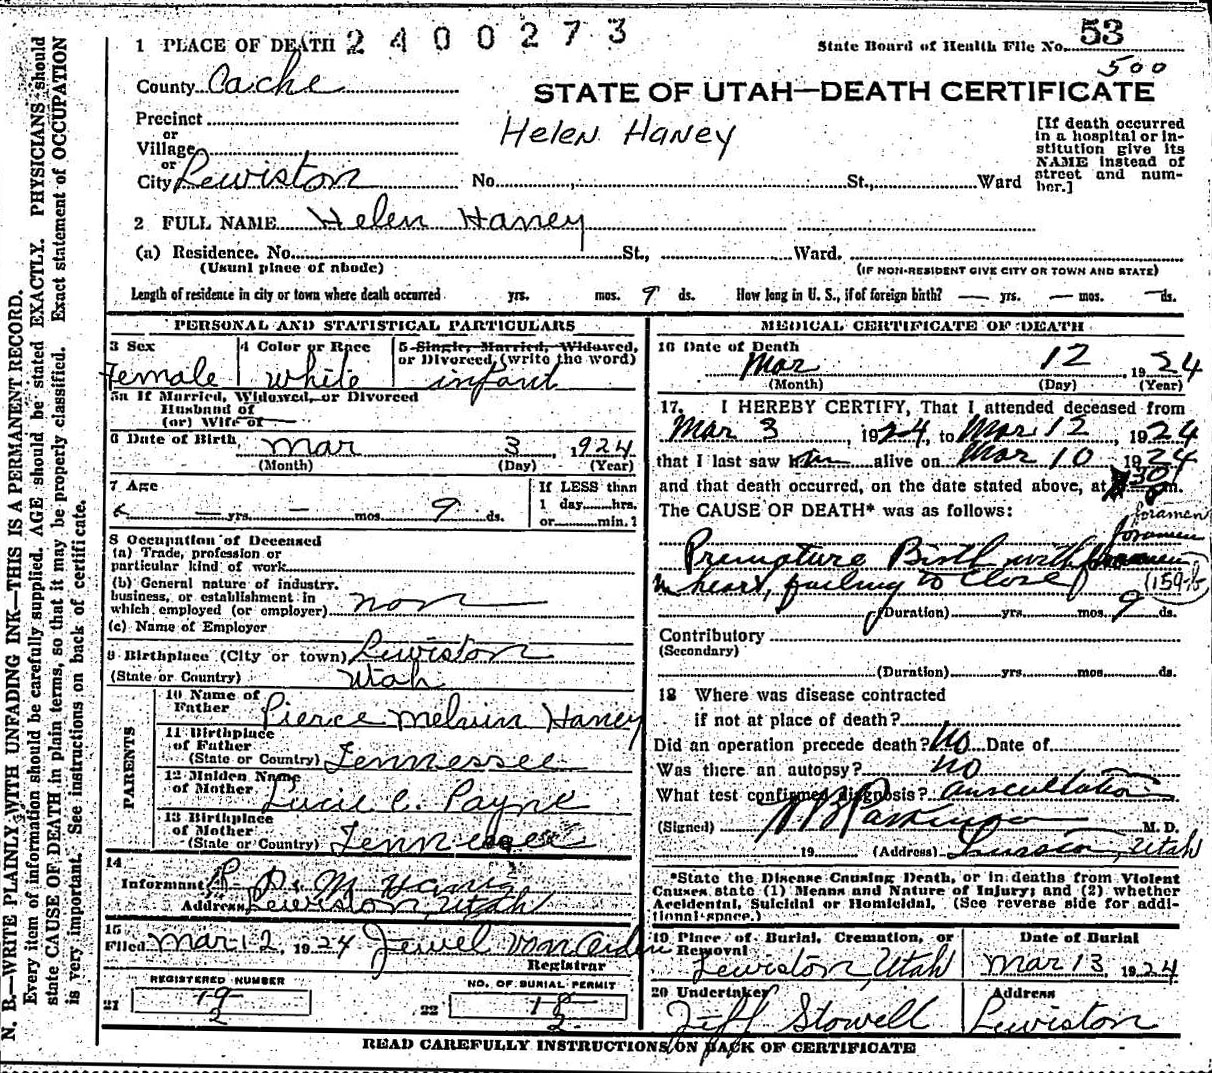 1 PLACE OF DEATH 2400273
State Board of Health File No. 53
500
County Cache
STATE OF UTAH—DEATH CERTIFICATE
Precinct
or
Village
or
City Lewiston No. St., Ward
Helen Haney
[If death occurred
in a hospital or in-
stitution give its
NAME instead of
street and num-
ber.]
2 FULL NAME Helen Haney
(a) Residence. No. St., Ward.
(Usual place of abode)
(IF NON-RESIDENT GIVE CITY OR TOWN AND STATE)
Length of residence in city or town where death occurred yrs. mos. 9 ds. How long in U. S., if of foreign birth? — yrs. — mos. — ds.
PERSONAL AND STATISTICAL PARTICULARS
3 Sex
Female
4 Color or Race
white
5 Single, Married, Widowed,
or Divorced (write the word)
infant
5a If Married, Widowed, or Divorced
Husband of
(or) Wife of —
6 Date of Birth Mar 3, 1924
(Month) (Day) (Year)
7 Age
— yrs. — mos. 9 ds.
If LESS than
1 day hrs.
or min.?
8 Occupation of Deceased
(a) Trade, profession or
particular kind of work
(b) General nature of industry.
business, or establishment in
which employed (or employer) non
(c) Name of Employer
9 Birthplace (City or town) Lewiston
(State or Country) Utah
PARENTS
10 Name of
Father Pierce Melvin Haney
11 Birthplace
of Father
(State or Country) Tennessee
12 Maiden Name
of Mother Lucie C. Payne
13 Birthplace
of Mother
(State or Country) Tennessee
14
Informant P. M. Haney
Address Lewiston, Utah
15
Filed Mar 12, 1924 Jewel Van Orden
Registrar
REGISTERED NUMBER
21 19
2
NO. OF BURIAL PERMIT
22 18
2
MEDICAL CERTIFICATE OF DEATH
16 Date of Death
Mar 12, 1924
(Month) (Day) (Year)
17. I HEREBY CERTIFY, That I attended deceased from
Mar 3, 1924, to Mar 12, 1924
that I last saw her alive on Mar 10 1924
and that death occurred, on the date stated above, at 30 m.
The CAUSE OF DEATH* was as follows:
foramen
foramen
Premature Birth with foramen
in heart, failing to close 159-b
(Duration) yrs. mos. 9 ds.
Contributory
(Secondary)
(Duration) yrs. mos. ds.
18 Where was disease contracted
if not at place of death?
Did an operation precede death? No Date of
Was there an autopsy? no
What test confirmed diagnosis? auscultation
(Signed) Parkinson M. D.
19 (Address) Lewiston, Utah
*State the Disease Causing Death, or in deaths from Violent
Causes state (1) Means and Nature of Injury; and (2) whether
Accidental, Suicidal or Homicidal. (See reverse side for addi-
tional space.)
19 Place of Burial, Cremation, or
Removal
Lewiston, Utah
Date of Burial
Mar 13, 1924
20 Undertaker
Jeff Stowell
Address
Lewiston
READ CAREFULLY INSTRUCTIONS ON BACK OF CERTIFICATE
N. B.—WRITE PLAINLY WITH UNFADING INK—THIS IS A PERMANENT RECORD.
Every item of information should be carefully supplied. AGE should be stated EXACTLY. PHYSICIANS should
state CAUSE OF DEATH in plain terms, so that it may be properly classified. Exact statement of OCCUPATION
is very important. See instructions on back of certificate.